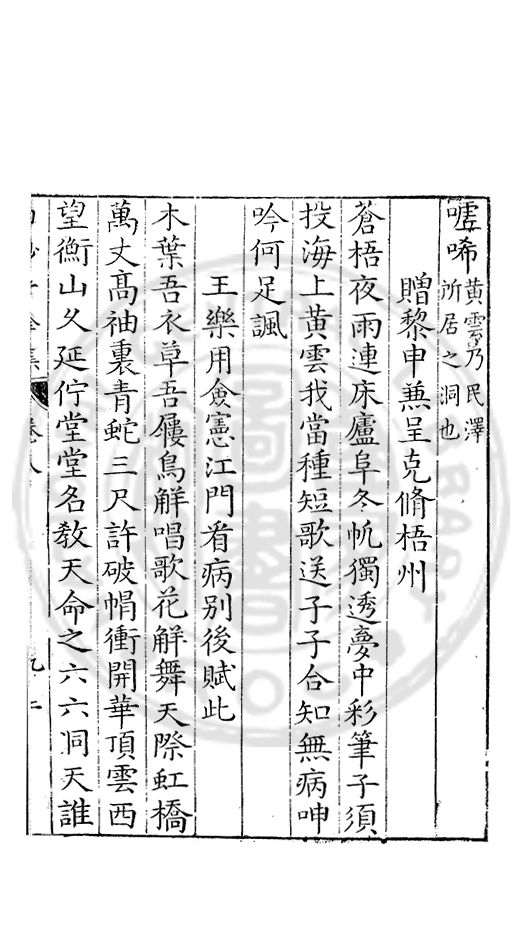 噓唏黄雲乃民澤
所居之洞也
贈黎申兼呈克脩梧州
蒼梧夜雨連床廬阜冬帆獨透夢中彩筆子須
投海上黄雲我當種短歌送子子合知無病呻
吟何足諷
王樂用僉憲江門看病別後賦此
木葉吾衣草吾屨鳥解唱歌花解舞天際虹橋
萬丈高袖裏青蛇三尺許破帽衝開華頂雲西
望衡山久延佇堂堂名教天命之六六洞天誰
卷八